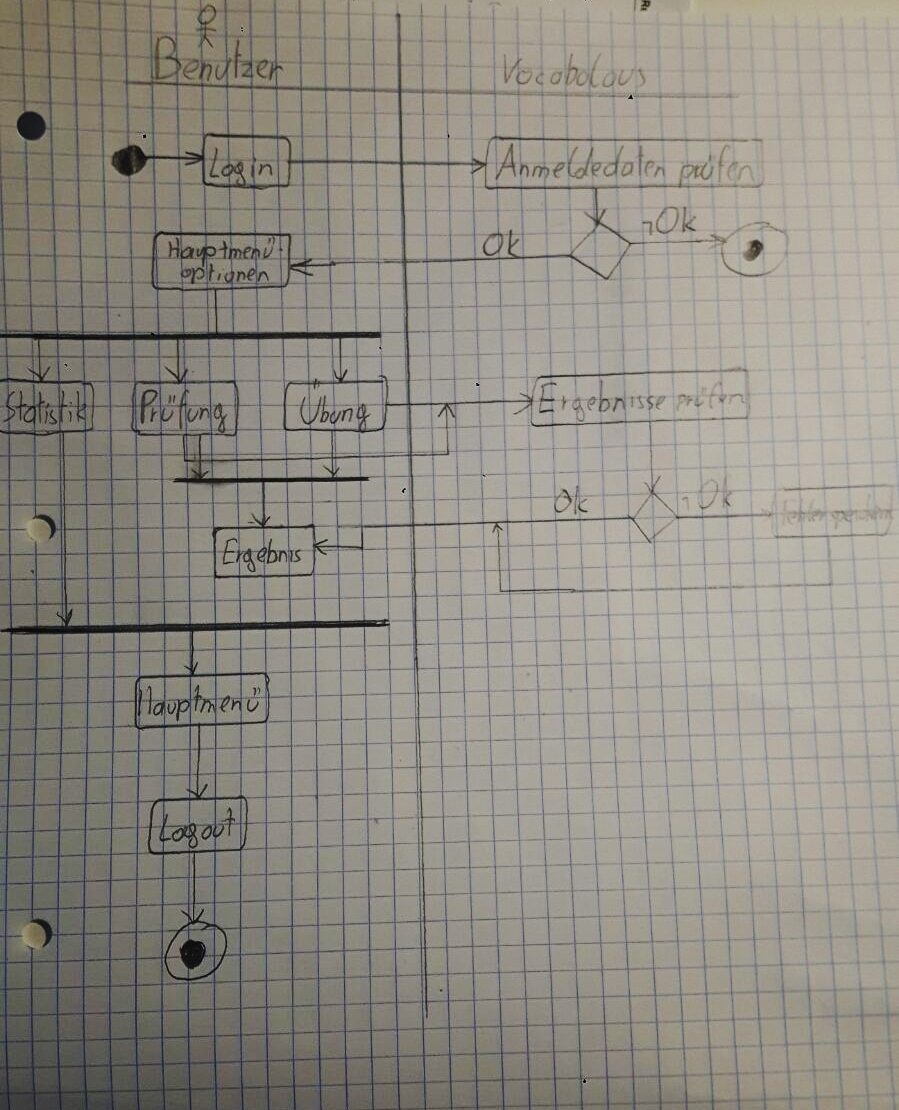 Benutzer
Vocabolous
Login
Anmeldedaten prüfen
¬Ok
Ok
Hauptmenü-
optionen
Statistik
Prüfung
Übung
Ergebnisse prüfen
Ok
¬Ok
Ergebnis
Hauptmenü
Logout